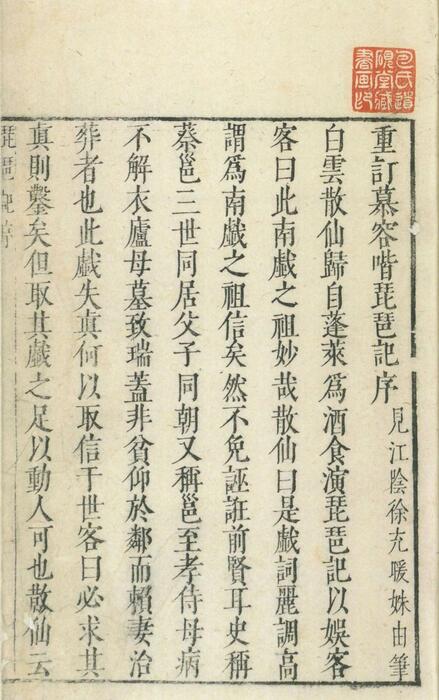 重訂慕容喈琵琶記序 見江陰徐充暖姝由筆
白雲散仙歸自蓬萊爲酒食演琵琶記以娛客
客曰此南戲之祖妙哉散仙曰是戲詞麗調高
謂爲南戲之祖信矣然不免誣誑前賢耳史稱
蔡邕三世同居父子同朝又稱邕至孝侍母病
不解衣廬母墓致瑞蓋非貧仰於鄰而賴妻治
葬者也此戲失真何以取信于世客曰必求其
真則鑿矣但取其戲之足以動人可也散仙云
琵琶記序